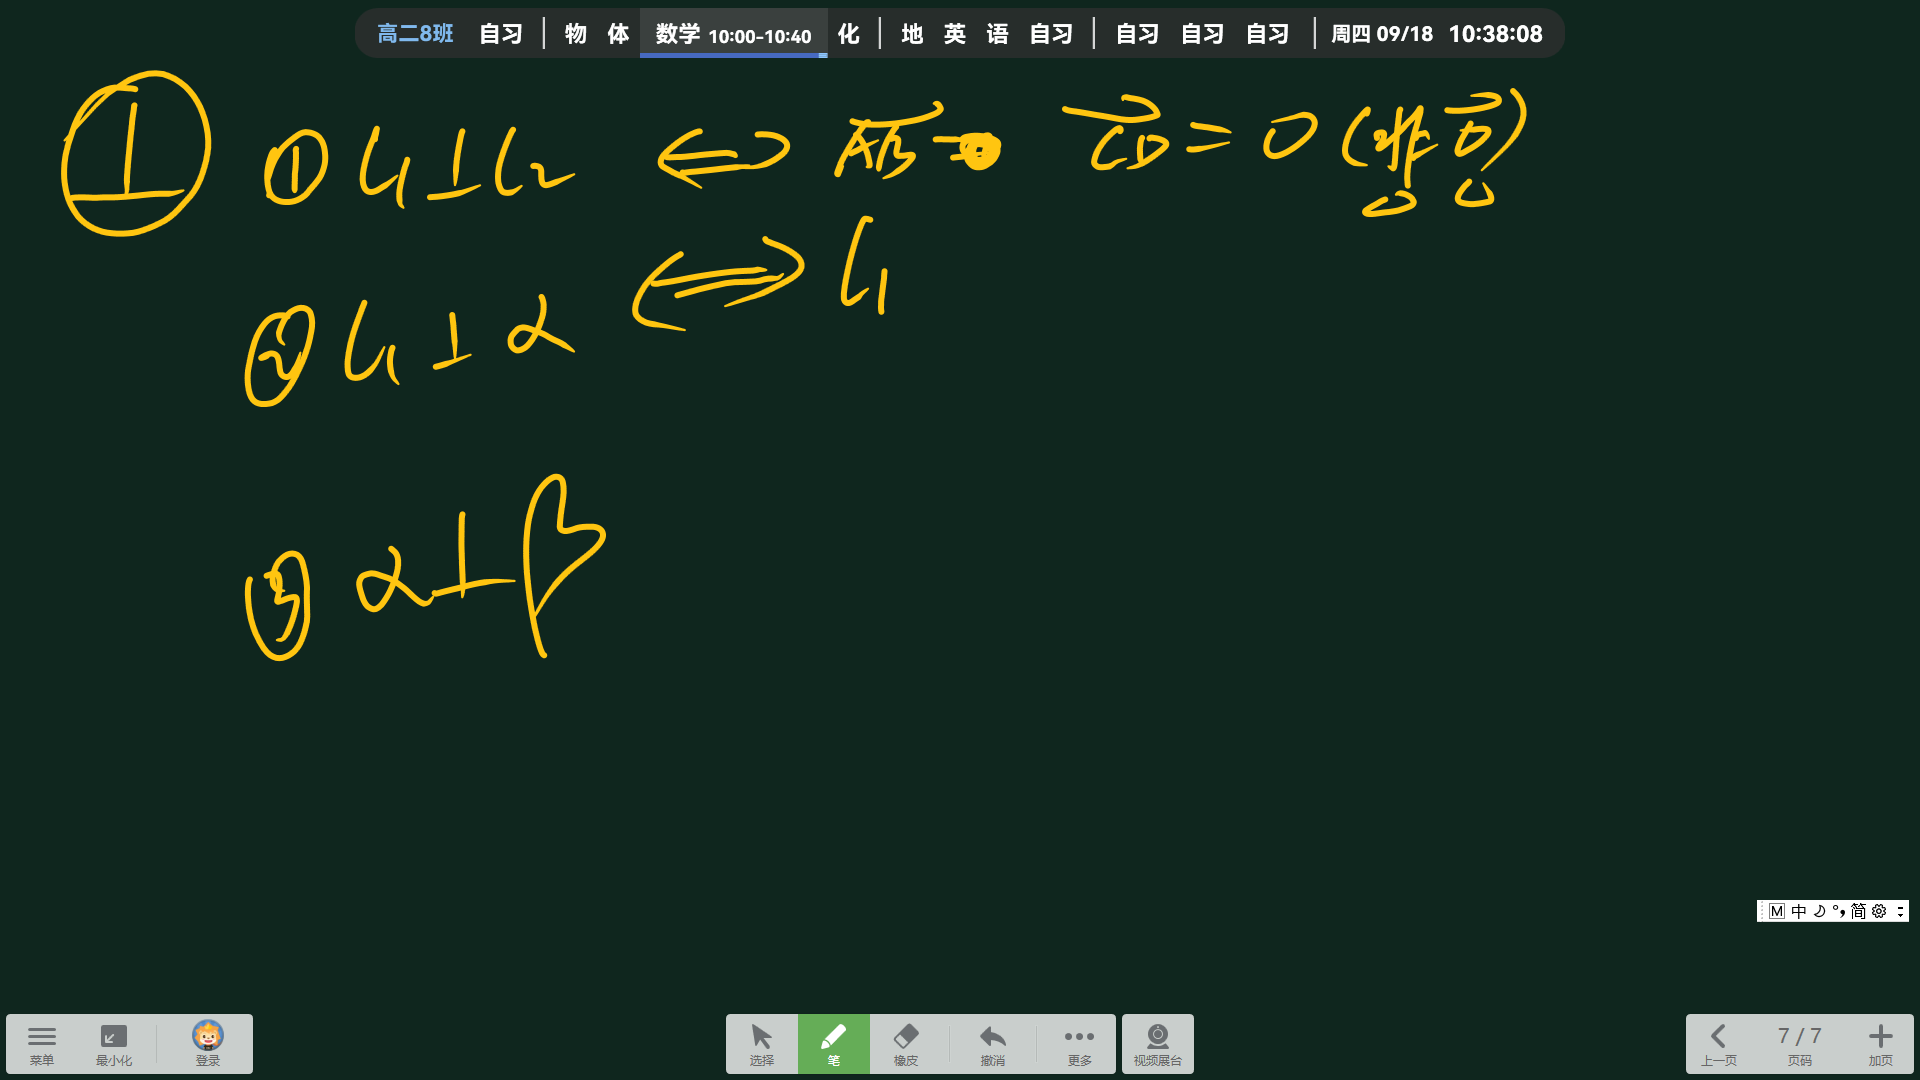 高二8班 自习 | 物 体 数学 10:00-10:40 化 | 地 英 语 自习 | 自习 自习 自习 | 周四 09/18 10:38:08
⊥ ① l₁⊥l₂ ⇔ AB CD = 0 (非0)
② l₁⊥α ⇔ l₁
③ α⊥β
M 中 简
菜单 最小化 登录 选择 笔 橡皮 撤消 更多 视频展台 上一页 7 / 7 页码 加页